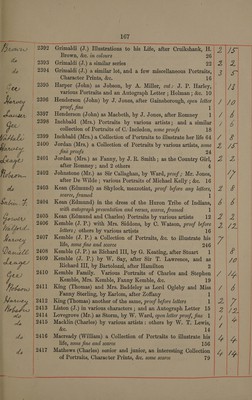 167
Brown 2392 Grimaldi (J.) Illustrations to his Life, after Cruikshank, H. Brown, &c. in colours 26 2 15
do 2393 Grimaldi (J.) a similar series 23 2 2
do 2394 Grimaldi (J.) a similar lot, and a few miscellaneous Portraits, Character Prints, &c. 16 3 5
2395 Harper (John) as Jobson, by A. Miller, cut: J. P. Harley, various Portraits and an Autograph Letter; Holman; &c. 10 1 12
Harvey 2396 Henderson (John) by J. Jones, after Gainsborough, open letter proof, fine 1 10
2397 Henderson (John) as Macbeth, by J. Jones, after Romney 1
2398 Inchbald (Mrs.) Portraits by various artists; and a similar collection of Portraits of C. Incledon, some proofs 18 1
2399 Inchbald (Mrs.) a Collection of Portraits to illustrate her life 64 8
Harvey 2400 Jordan (Mrs.) a Collection of Portraits by various artists, some fine proofs 24 2 15
2401 Jordan (Mrs.) as Fanny, by J. R. Smith; as the Country Girl, after Romney; and 3 others 5 2 2
2402 Johnstone (Mr.) as Sir Callaghan, by Ward, proof; Mr. Jones, after De Wilde; various Portraits of Michael Kelly; &c. 16 1
do 2405 Kean (Edmund) as Shylock, mezzotint, proof before any letters, scarce, framed 2
2404 Kean (Edmund) in the dress of the Huron Tribe of Indians, with autograph presentation and verses, scarce, framed 1
2405 Kean (Edmund and Charles) Portraits by various artists 13 2 2
2406 Kemble (J. P.) with Mrs. Siddons, by C. Watson, proof before letters; others by various artists 12 2
Harvey 2407 Kemble (J. P.) a Collection of Portraits, &c. to illustrate his life, some fine and scarce 246 7
Daniell 2408 Kemble (J. P.) as Richard III, by G. Keating, after Stuart 1
2409 Kemble (J. P.) by W. Say, after Sir T. Lawrence, and as Richard III, by Bartolozzi, after Hamilton 2 1
2410 Kemble Family. Various Portraits of Charles and Stephen Kemble, Mrs. Kemble, Fanny Kemble, &c. 19 4
2411 King (Thomas) and Mrs. Baddeley as Lord Ogleby and Miss Fanny Sterling, by Earlom, after Zoffany 1 6
Harvey 2412 King (Thomas) another of the same, proof before letters 1 2
2413 Liston (J.) in various characters; and an Autograph Letter 15 2 12
do 2414 Lovegrove (Mr.) as Storm, by W. Ward, open letter proof, fine 1
do 2415 Macklin (Charles) by various artists: others by W. T. Lewis, &c. 14 1 4
do 2416 Macready (William) a Collection of Portraits to illustrate his life, some fine and scarce 40 4
do 2417 Mathews (Charles) senior and junior, an interesting Collection of Portraits, Character Prints, &c. some scarce 79 4